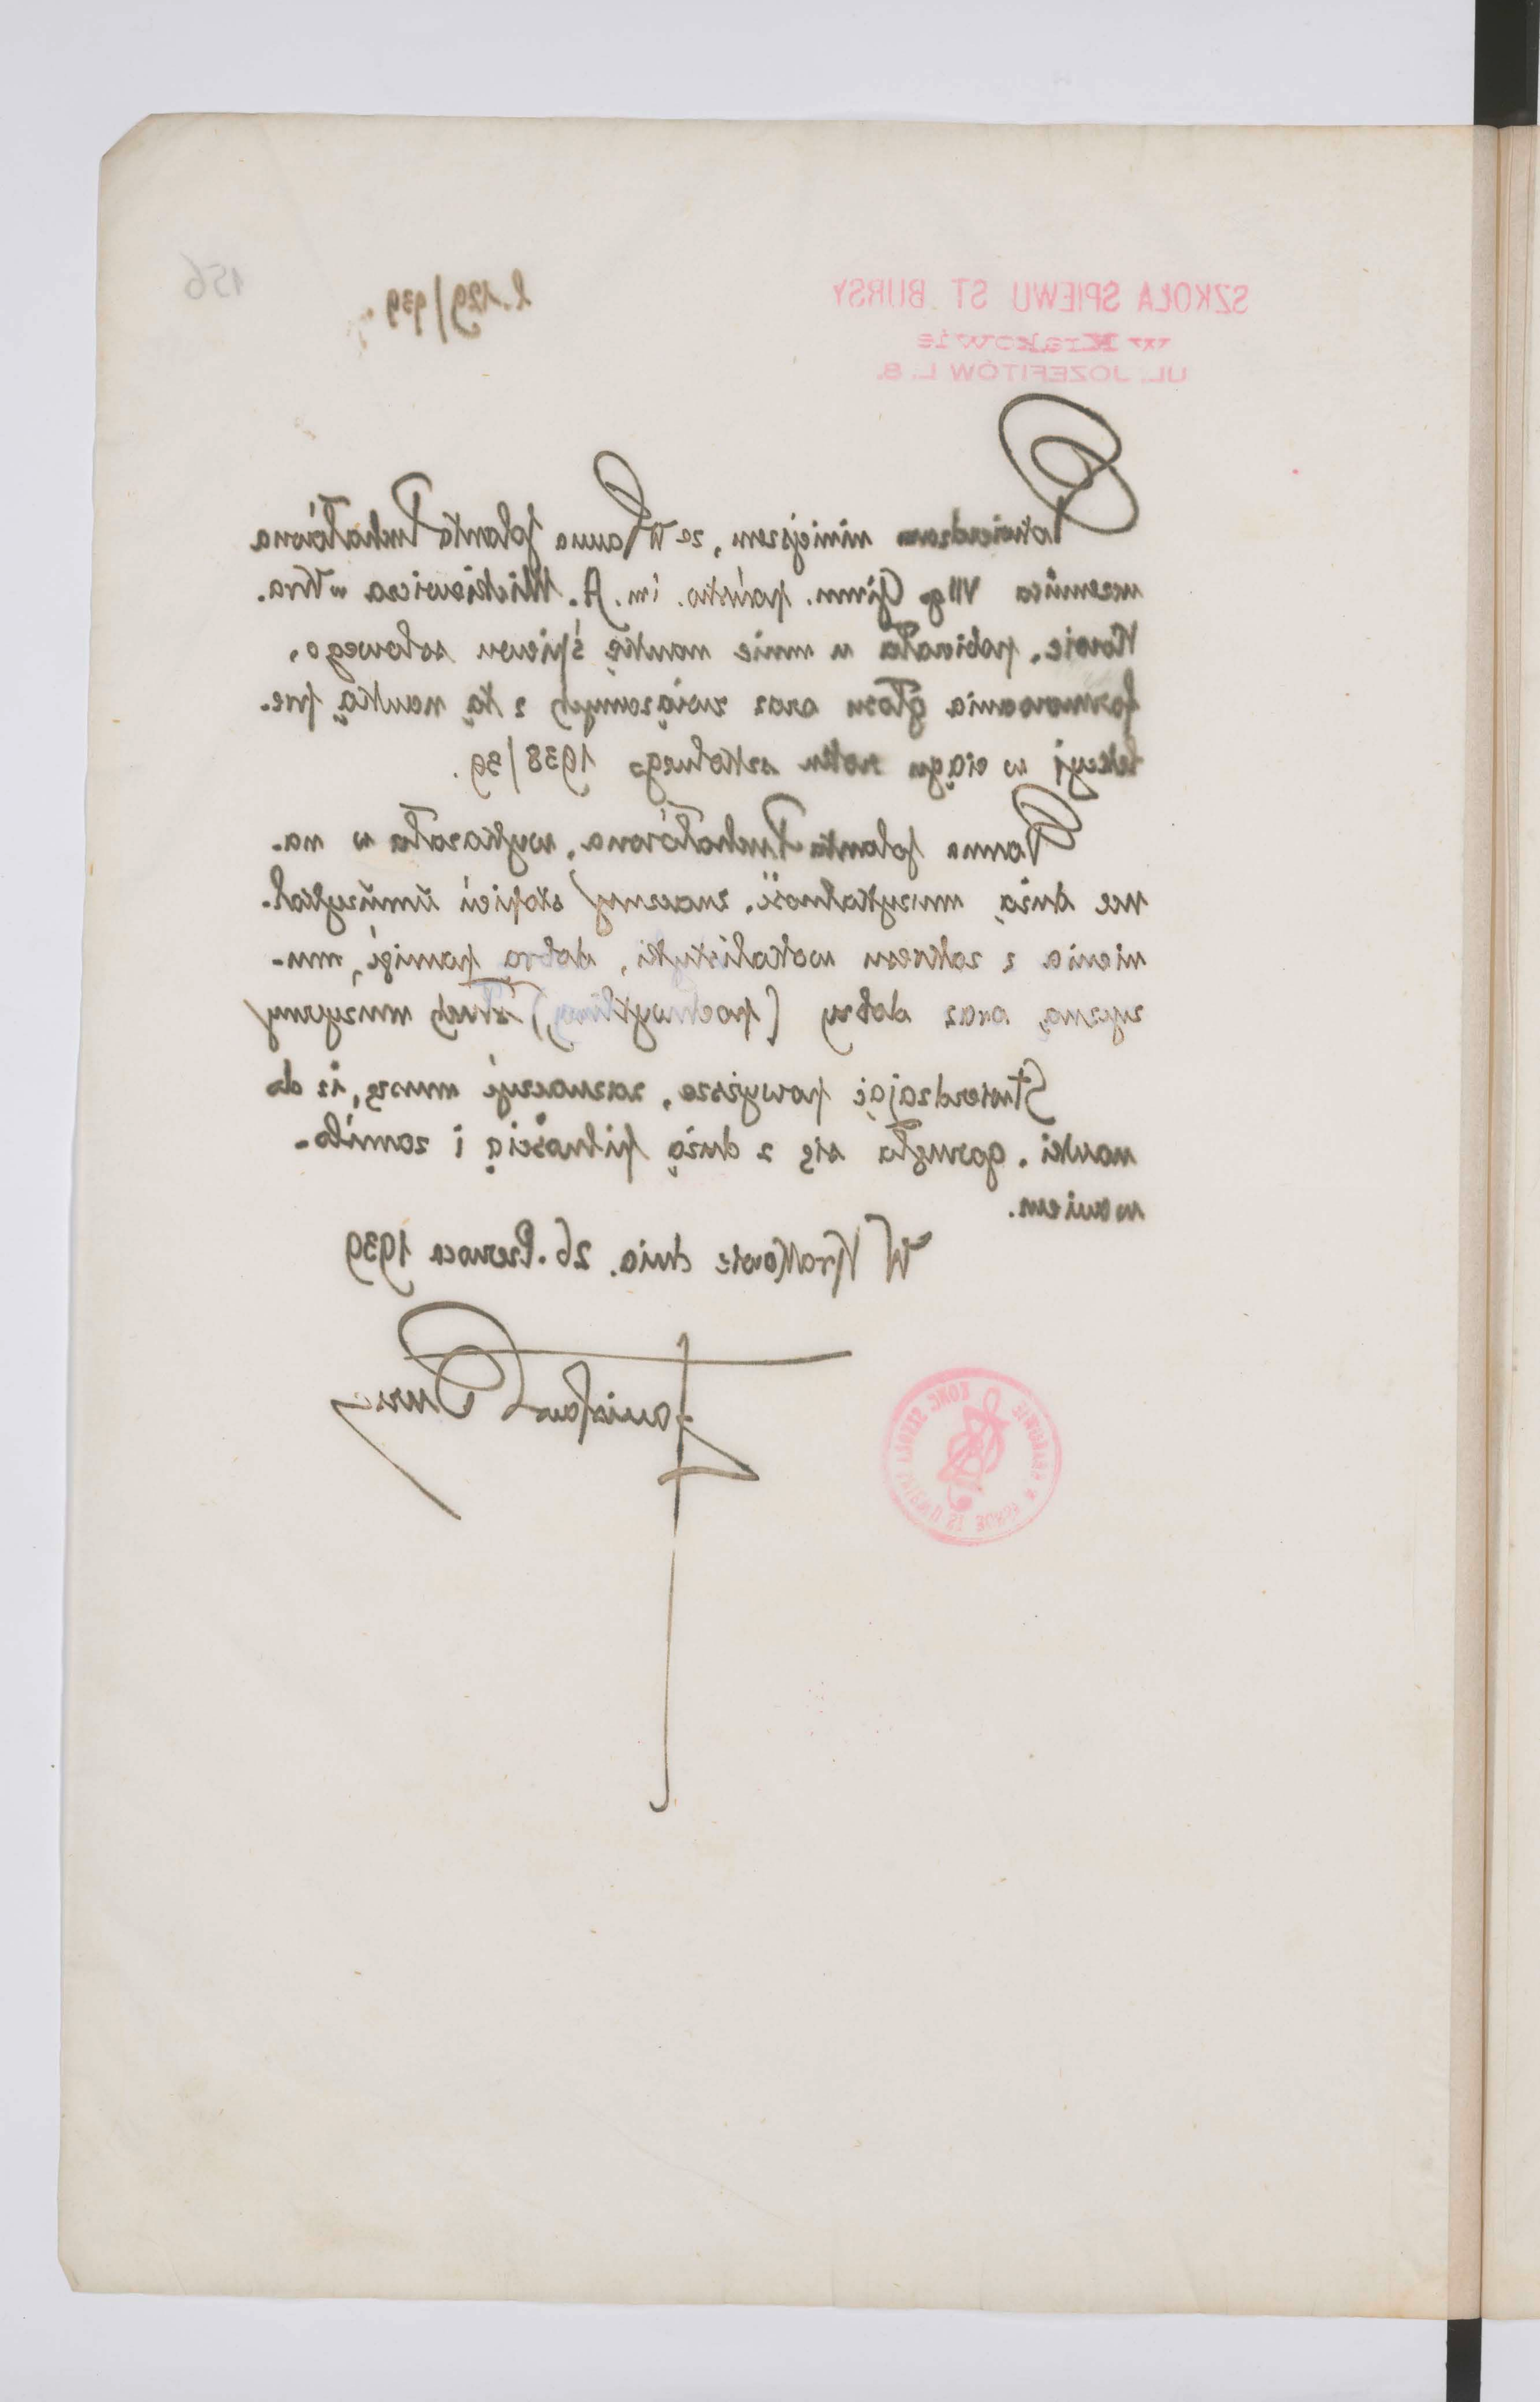 156
L. 129/939
SZKOŁA SPIEWU ST. BURSY
w Krakowie
UL. JOZEFITÓW L. 8.
Potwierdzam niniejszem, że W Panna Jolanta Puchałówna
uczennica VIIgo Gimn. państw. im. A. Mickiewicza w Kra-
kowie, pobierała u mnie naukę śpiewu solowego,
formowania głosu oraz związanych z tą nauką pre-
lekcyj w ciągu roku szkolnego 1938/39.
Panna Jolanta Puchałówna, wykazała w na-
uce dużą muzykalność, znaczny stopień umuzykal-
nienia z zakresu wokalistyki, dobrą pamięć, mu-
zyczną, oraz dobry (pochwytliwy) słuch muzyczny
Stwierdzając powyższe, zaznaczyć muszę, iż do
nauki, garnęła się z dużą pilnością i zamiło-
waniem.
W Krakowie dnia. 26. Czerwca 1939
Stanisław Bursa
KONC SZKOŁA ŚPIEWU ST BURSY W KRAKOWIE